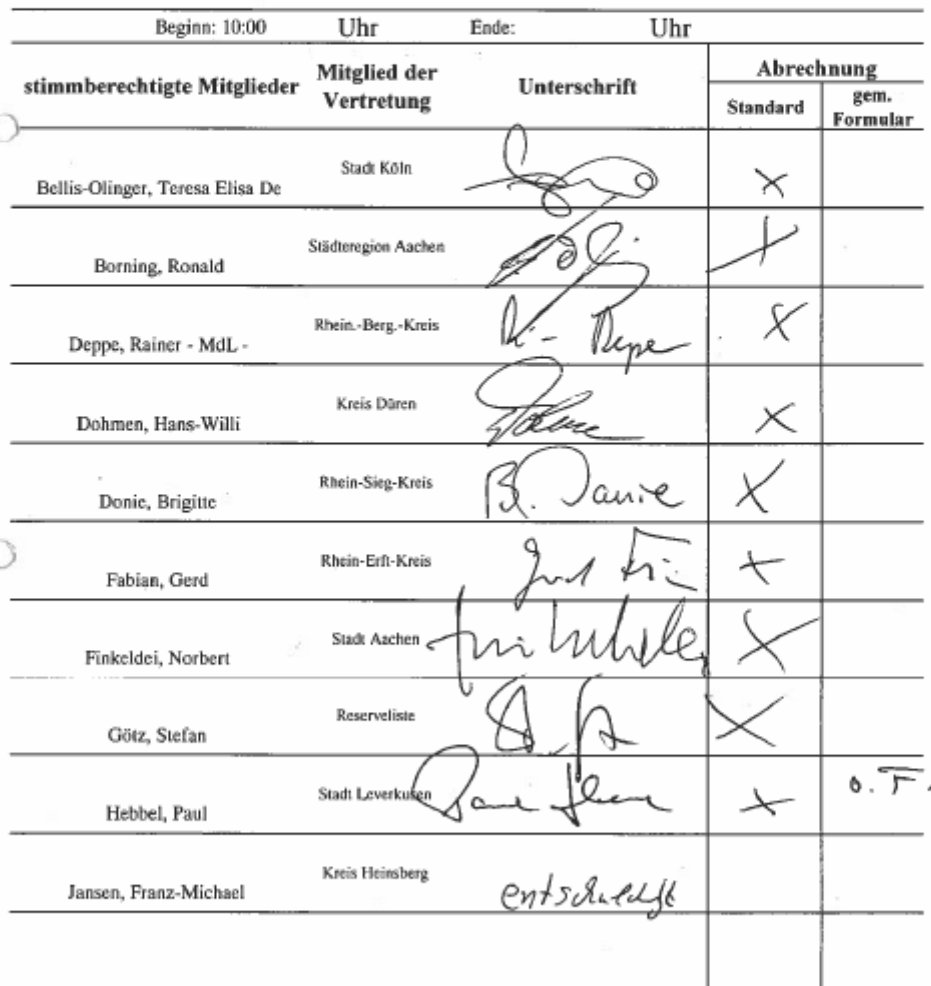 Beginn: 10:00 Uhr Ende: Uhr
stimmberechtigte Mitglieder Mitglied der Vertretung Unterschrift Abrechnung
Standard gem. Formular
Bellis-Olinger, Teresa Elisa De Stadt Köln X
Borning, Ronald Städteregion Aachen X
Deppe, Rainer - MdL - Rhein.-Berg.-Kreis X
Dohmen, Hans-Willi Kreis Düren X
Donie, Brigitte Rhein-Sieg-Kreis B. Donie X
Fabian, Gerd Rhein-Erft-Kreis X
Finkeldei, Norbert Stadt Aachen X
Götz, Stefan Reserveliste X
Hebbel, Paul Stadt Leverkusen X o. F.
Jansen, Franz-Michael Kreis Heinsberg entschuldigt